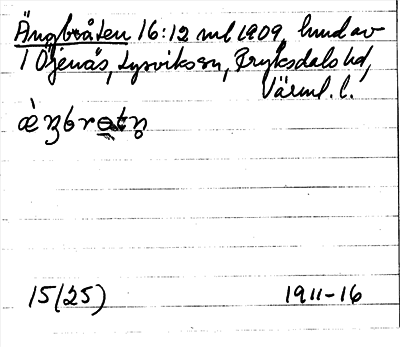 Ängbråten 16:12 ml 1909, hmd av
1 Öjenäs, Lysviks sn, Fryksdals hd,
Värml. l.
æ̀ŋbratn̥
15(25) 1911-16